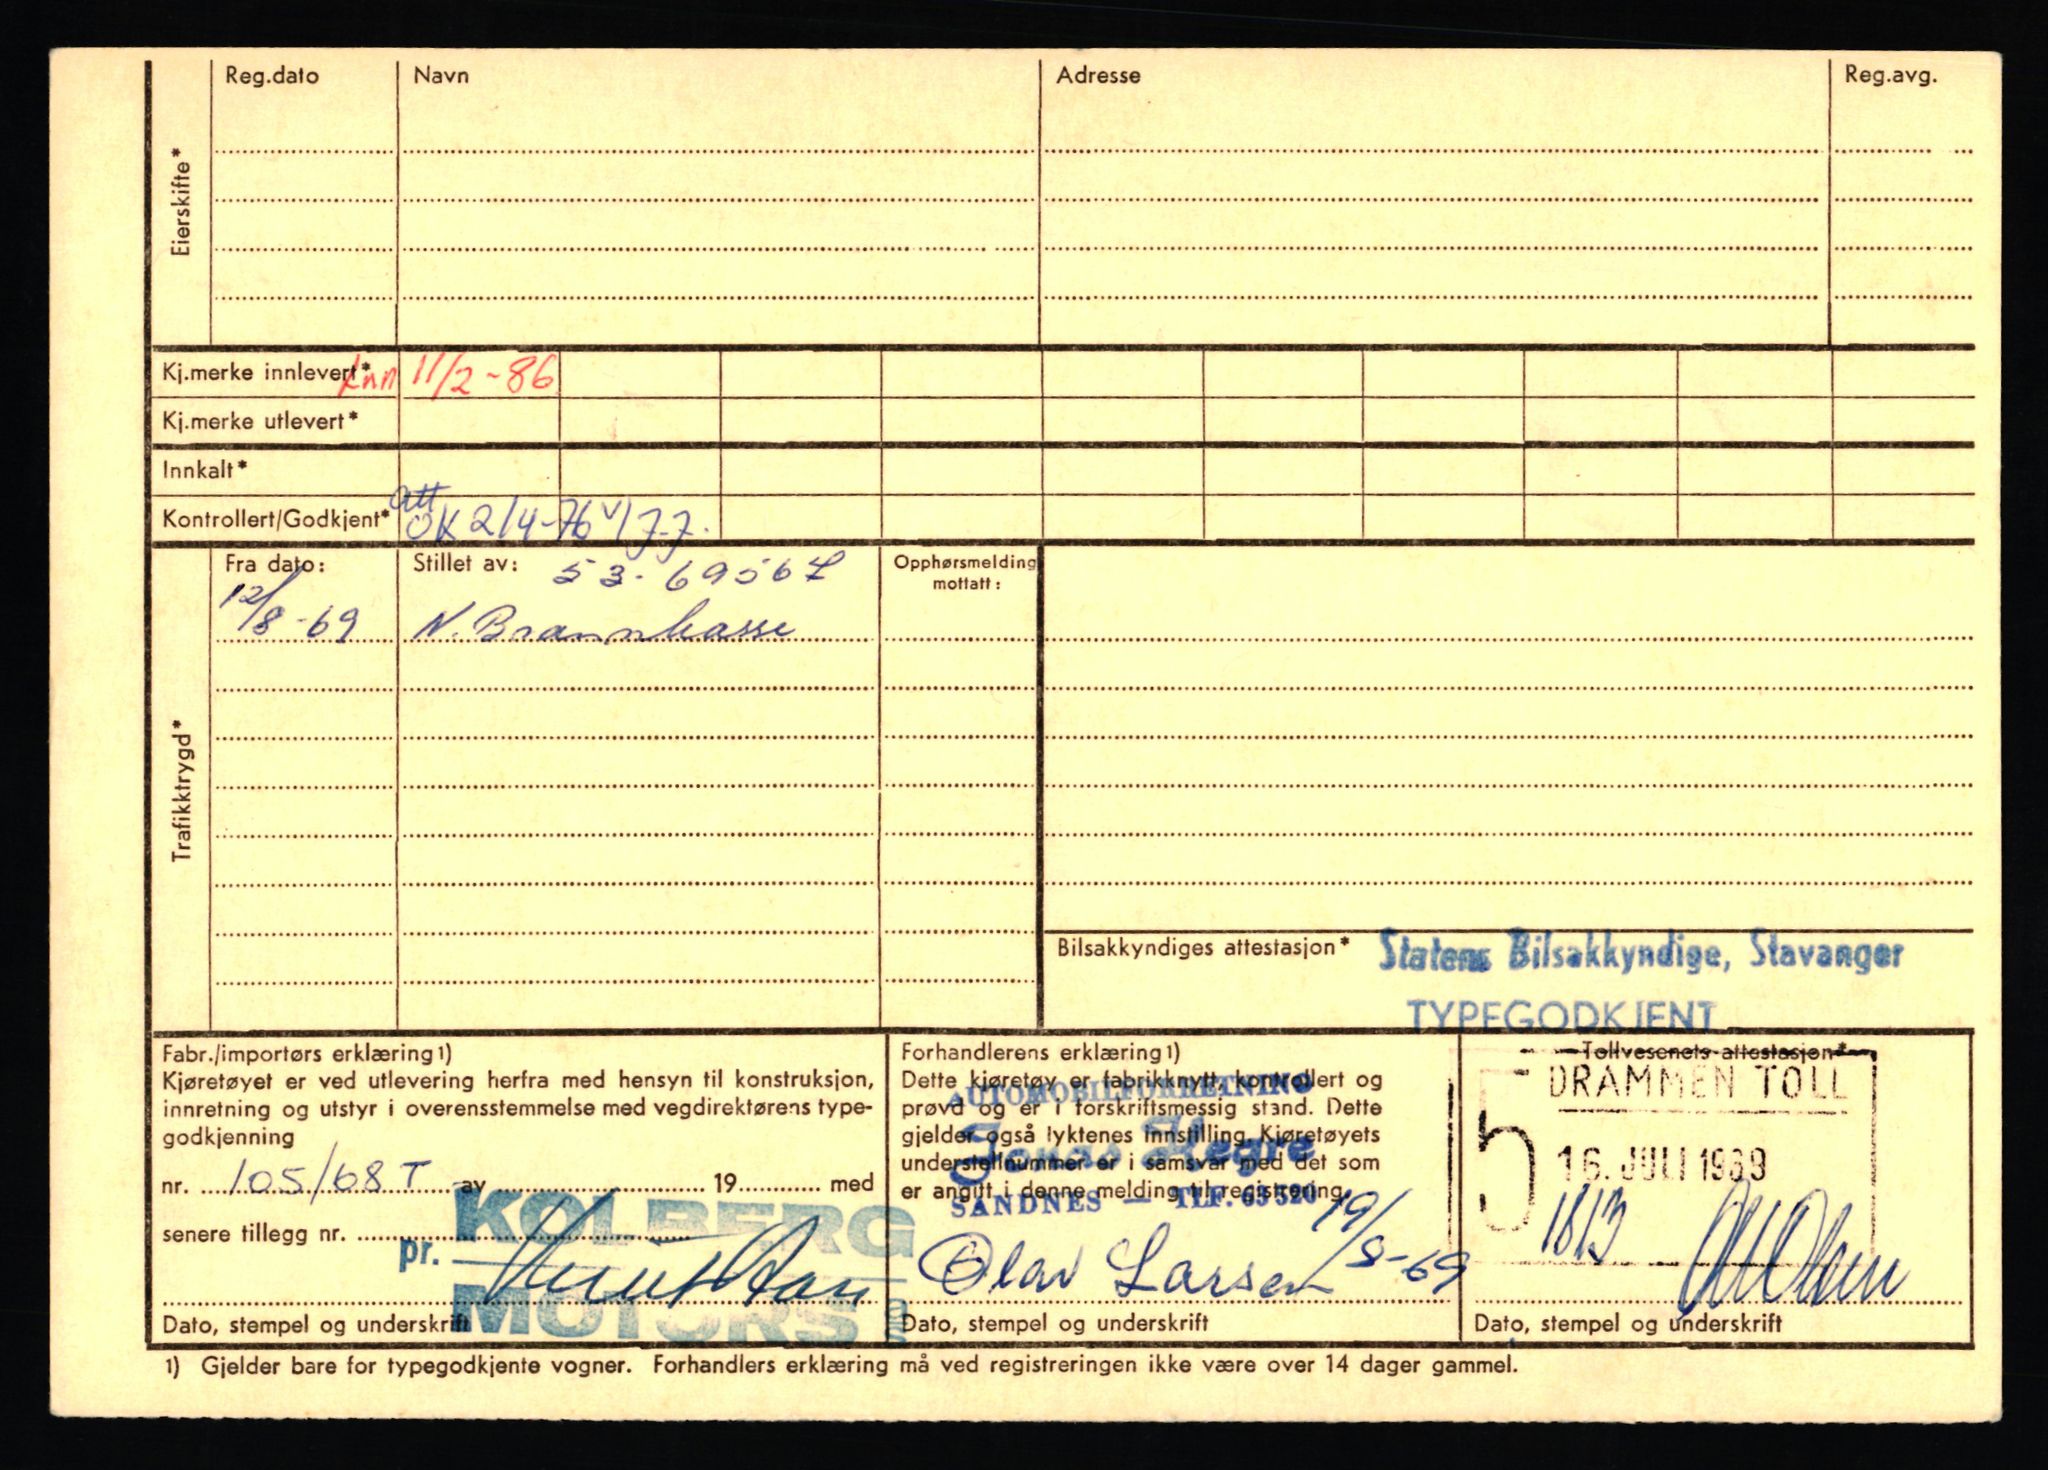 Reg.dato Navn Adresse Reg.avg.
Eierskifte*
Kj.merke innlevert* 11/2-86
Kj.merke utlevert*
Innkalt*
att
Kontrollert/Godkjent* OK 2/4-76 v/J.J.
Trafikktrygd*
Fra dato: Stillet av: 53-69567 Opphørsmelding mottatt:
12/8-69 N. Brannkasse
Bilsakkyndiges attestasjon* Statens Bilsakkyndige, Stavanger
TYPEGODKJENT
Fabr./importørs erklæring 1)
Kjøretøyet er ved utlevering herfra med hensyn til konstruksjon,
innretning og utstyr i overensstemmelse med vegdirektørens type-
godkjenning
nr. 105/68 T av 19 med
senere tillegg nr.
pr. KOLBERG
MOTORS
Dato, stempel og underskrift
Forhandlerens erklæring 1)
Dette kjøretøy er fabrikknytt, kontrollert og
prøvd og er i forskriftsmessig stand. Dette
gjelder også lyktenes innstilling. Kjøretøyets
understellnummer er i samsvar med det som
er angitt i denne melding til registrering.
AUTOMOBILFORRETNING
Jonas Hegre
SANDNES — TLF. 63 520
19/8-69
Olav Larsen
Dato, stempel og underskrift
Tollvesenets attestasjon*
DRAMMEN TOLL
5
16. JULI 1969
1813
Dato, stempel og underskrift
1) Gjelder bare for typegodkjente vogner. Forhandlers erklæring må ved registreringen ikke være over 14 dager gammel.